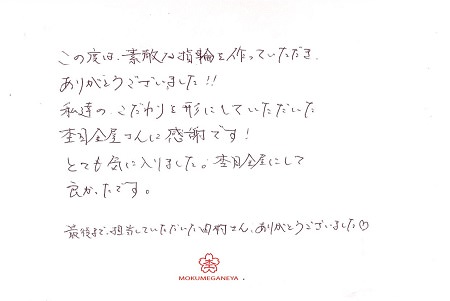 この度は、素敵な指輪を作っていただき、
ありがとうございました!!
私達の こだわりを形にしていただいた
杢目金屋さんに感謝です!
とても気に入りました。杢目金屋にして
良かったです。
最後まで、担当していただいた田村さん、ありがとうございました♡
MOKUMEGANEYA